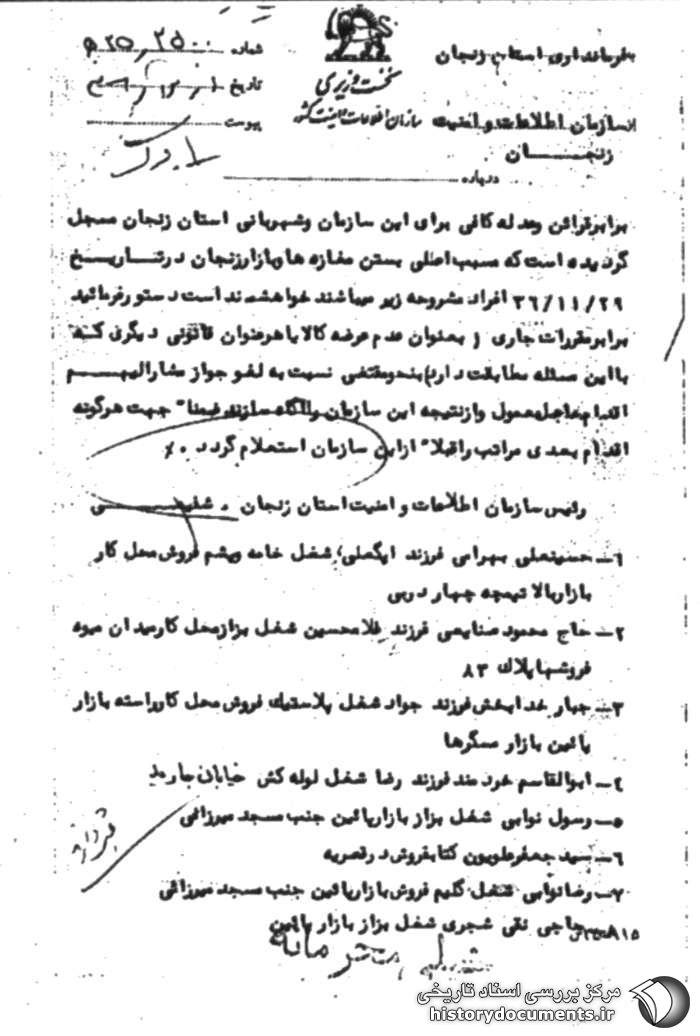 بفرمانداری استان زنجان
نخست وزیری
سازمان اطلاعات و امنیت کشور
شماره
تاریخ
پیوست
از سازمان اطلاعات و امنیت
زنجان
درباره
برابر قرائن و مدله کافی برای این سازمان و شهربانی استان زنجان مسجل
گردیده است که مسبب اصلی بستن مغازه ها و بازار زنجان در تاریخ
۳۶/۱۱/۲۹ افراد مشروحه زیر میباشند خواهشمند است دستور فرمائید
برابر مقررات جاری ( بعنوان عدم عرضه کالا یا هر عنوان قانونی دیگری که
با این مسئله مطابقت دارد) بنحو مقتضی نسبت به لغو جواز مشارالیهم
اقدام عاجل معمول و از نتیجه این سازمان را آگاه سازند ضمنا" جهت هرگونه
اقدام بعدی مراتب را قبلا" از این سازمان استعلام گردد ٪
رئیس سازمان اطلاعات و امنیت استان زنجان .
۱- حسینعلی بهرامی فرزند شغل خامه و پشم فروش محل کار
بازار بالا تیمچه چهار دربی
۲- حاج محمود صنایعی فرزند غلامحسین شغل بزاز محل کار میدان میوه
فروشها پلاک ۸۳
۳- جبار خدابخش فرزند جواد شغل پلاستیک فروش محل کار راسته بازار
پائین بازار مسگرها
۴- ابوالقاسم خردمند فرزند رضا شغل لوله کش خیابان
۵- رسول نوابی شغل بزاز بازار پائین جنب مسجد میرزائی
۶- سید جعفر علویون کتابفروش در قصریه
۷- رضا نوابی شغل گلیم فروش بازار پائین جنب مسجد میرزائی
حاجی نقی شجری شغل بزاز بازار پائین
مرکز بررسی اسناد تاریخی
historydocuments.ir